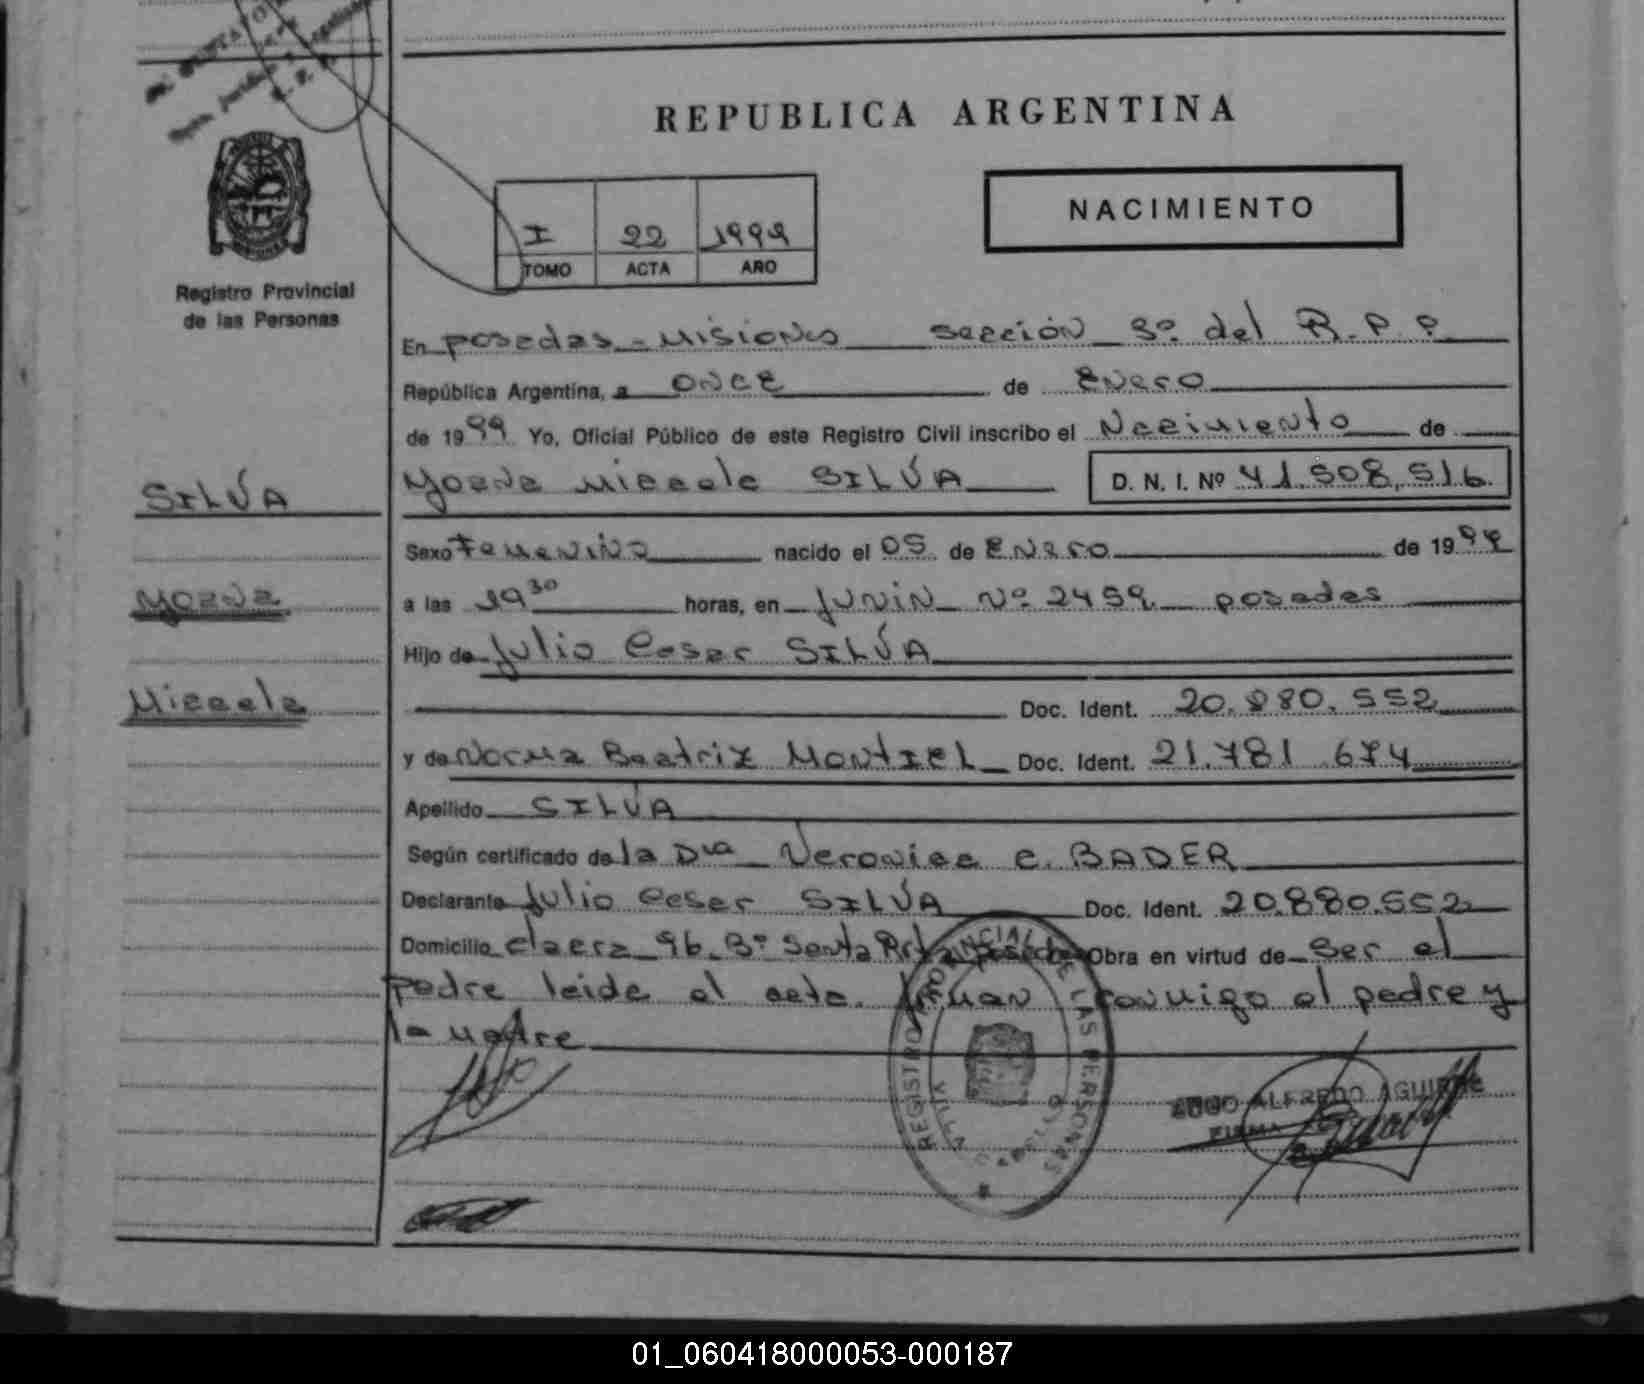 REPUBLICA ARGENTINA
NACIMIENTO
I 22 1999
TOMO ACTA AÑO
Registro Provincial
de las Personas
En posadas - Misiones sección 3º del R.P.P.
República Argentina, a once de Enero
de 1999 Yo, Oficial Público de este Registro Civil inscribo el Nacimiento de
Micaela SILVA D. N. I. Nº 41.508.516
SILVA
Sexo Femenino nacido el 05 de Enero de 1999
a las 19 30 horas, en Junin Nº 2459 posadas
Hijo de Julio Cesar SILVA
Micaela
Doc. Ident. 20.880.552
y de Norma Beatriz MontIEL Doc. Ident. 21.781.674
Apellido SILVA
Según certificado de la Dra Veronica C. BADER
Declarante Julio Cesar SILVA Doc. Ident. 20.880.552
Domicilio 96 Bº Santa Rita posadas Obra en virtud de Ser el
padre leida el acta. Firman conmigo el padre y
la madre
REGISTRO PROVINCIAL DE LAS PERSONAS
ALFREDO AGUIRRE
FIRMA
01_060418000053-000187